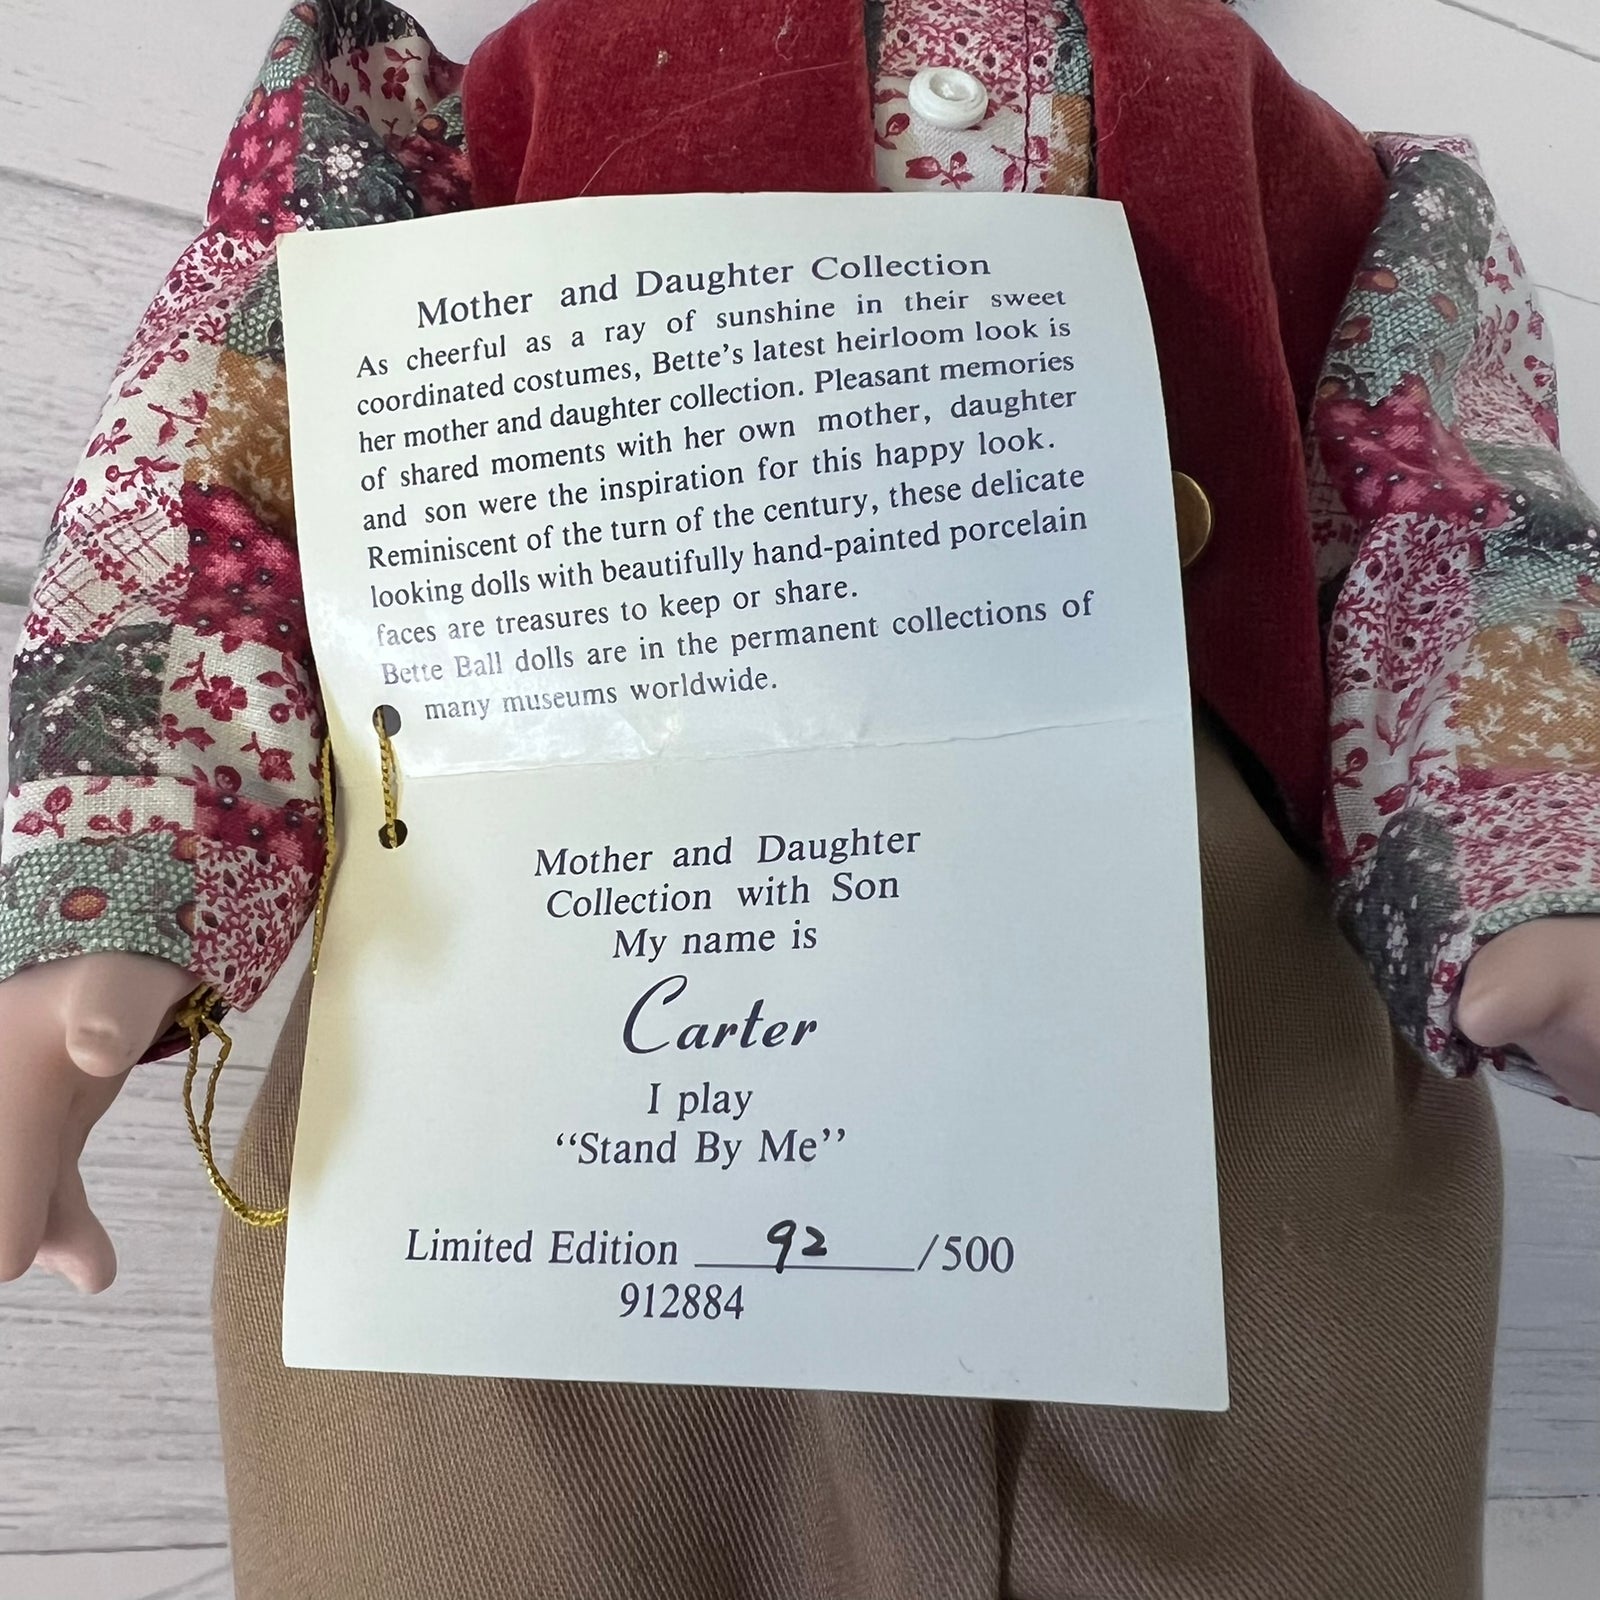 Mother and Daughter Collection
As cheerful as a ray of sunshine in their sweet
coordinated costumes, Bette's latest heirloom look is
her mother and daughter collection. Pleasant memories
of shared moments with her own mother, daughter
and son were the inspiration for this happy look.
Reminiscent of the turn of the century, these delicate
looking dolls with beautifully hand-painted porcelain
faces are treasures to keep or share.
Bette Ball dolls are in the permanent collections of
many museums worldwide.
Mother and Daughter
Collection with Son
My name is
Carter
I play
“Stand By Me”
Limited Edition 92 /500
912884